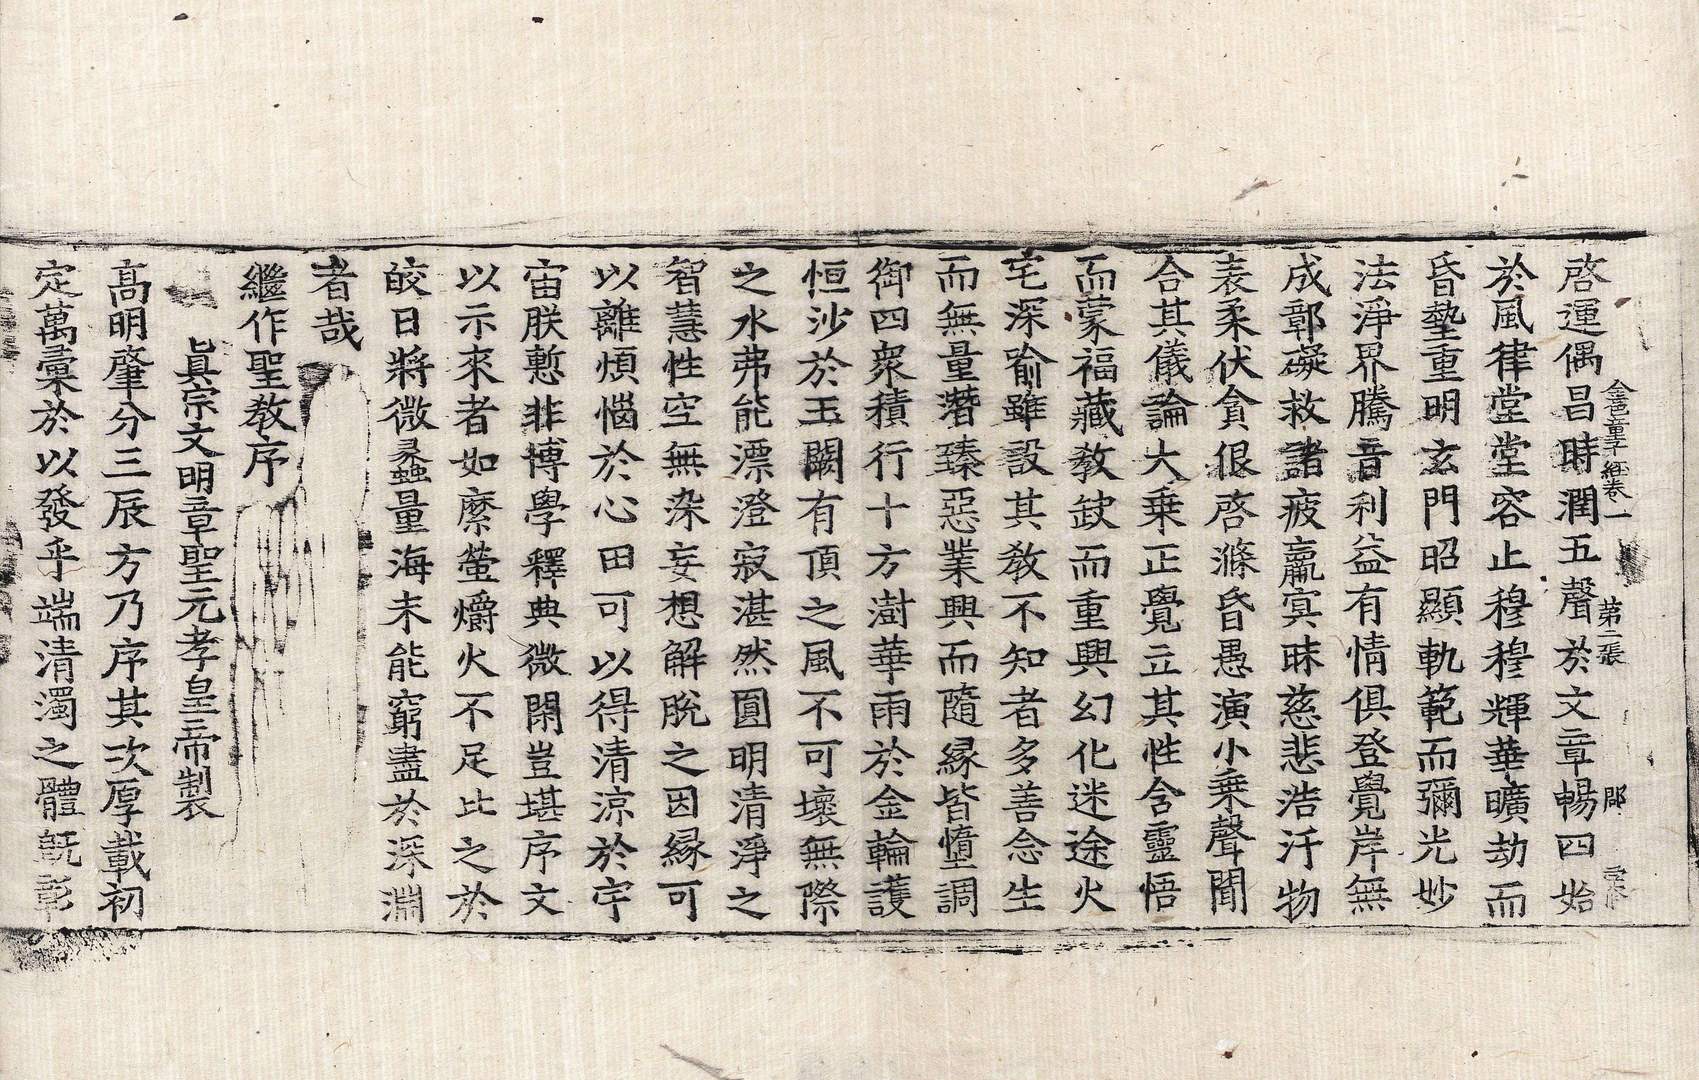 金色童子經卷一　第二張　郡
啓運偶昌時潤五聲於文章暢四始
於風律堂堂容止穆穆輝華曠劫而
昏墊重明玄門昭顯軌範而彌光妙
法淨界騰音利益有情俱登覺岸無
成鄣礙救諸疲羸㝠昧慈悲浩汗物
表柔伏貪很啓滌昏愚演小乗聲聞
合其儀論大乗正覺立其性含靈悟
而蒙福藏教缺而重興幻化迷途火
宅深喻雖設其教不知者多善念生
而無量潛臻惡業興而隨縁皆墮調
御四衆積行十方澍華雨於金輪護
恒沙於玉闕有頂之風不可壞無際
之水弗能漂澄寂湛然圓明清淨之
智慧性空無染妄想解脫之因縁可
以離煩惱於心田可以得清涼於宇
宙朕慙非博學釋典微閑豈堪序文
以示來者如縻螢爝火不足比之於
皎日將微蠡量海未能窮盡於深淵
者哉
繼作聖教序
眞宗文明章聖元孝皇帝製
高明肇分三辰方乃序其次厚載初
定萬彙於以發乎端清濁之體旣彰